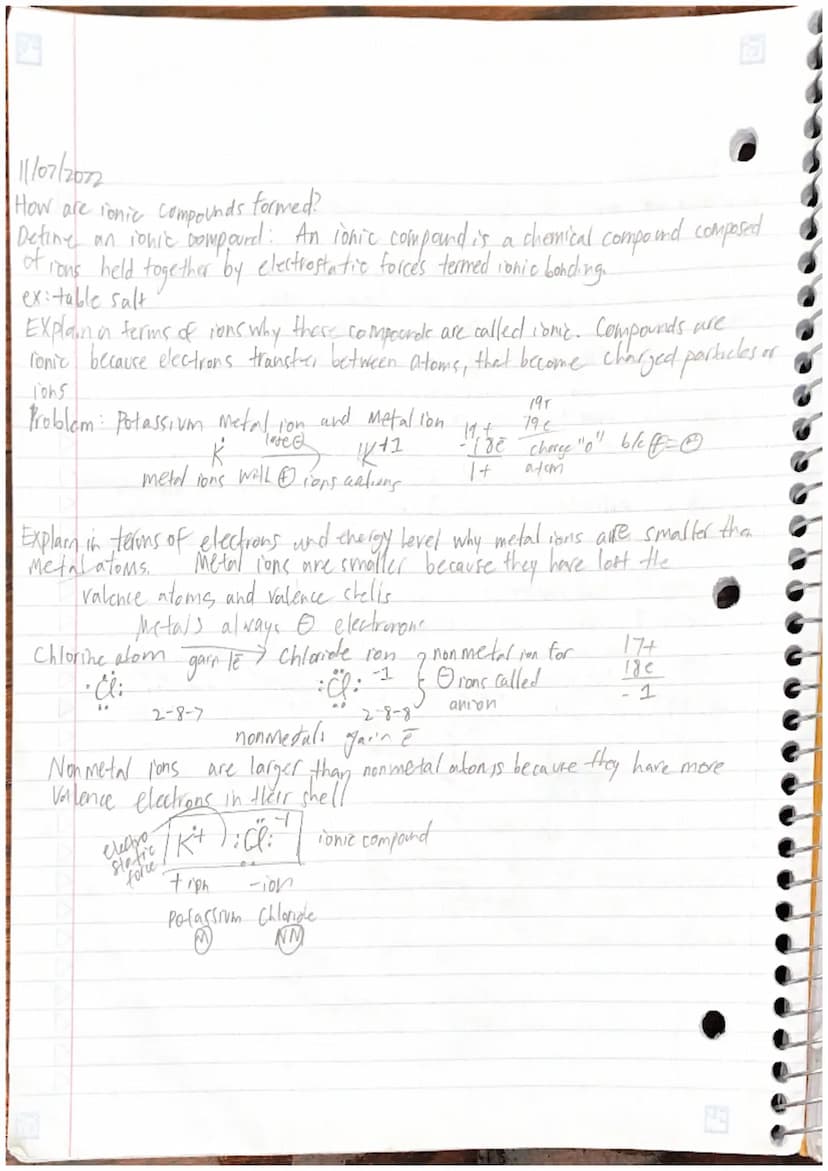 11/07/2022
How are ionic compounds formed?
Define an ionic compound: An ionic compound is a chemical compound composed
of ions held together by electrostatic forces termed ionic bonding.
ex: table salt
Explain in terms of ions why these compounds are called ionic. Compounds are
ionic because electrons transfer between atoms, that become charged particles or
ions
Problem: Potassium metal ion and metal ion
19+
19e
19+
-18e̅
1+
charge "0" b/c ⊕=⊖
atom
K̇ lose ⊖ K+1
metal ions will ⊕ ions cations
Explain in terms of electrons and energy level why metal ions are smaller than
metal atoms. Metal ions are smaller because they have lost the
valence atoms and valence shells
Metals always ⊖ electrons
Chlorine atom gain 1e̅ → Chloride ion } nonmetal ion for
17+
18e
-1
·Cl: :Cl: -1 ⊖ ions called
anion
2-8-7 2-8-8
nonmetals gain e̅
Nonmetal ions are larger than nonmetal atoms because they have more
valence electrons in their shell
electro
static
force
K+ :Cl: -1 ionic compound
+ ion -ion
Potassium Chloride
M NM